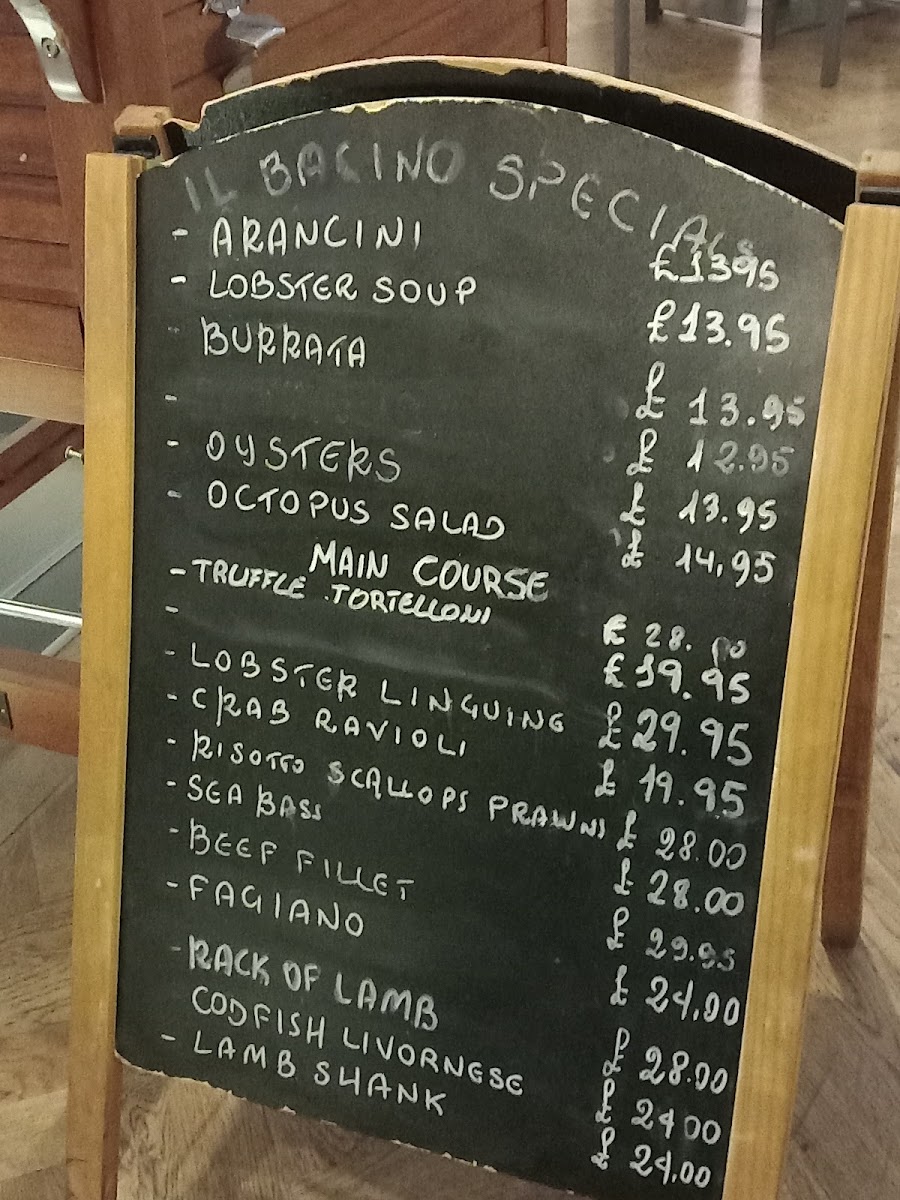 IL BACINO SPECIALS
- ARANCINI £1395
- LOBSTER SOUP £13.95
- BURRATA £ 13.95
- £ 12.95
- OYSTERS £ 13.95
- OCTOPUS SALAD £ 14,95
MAIN COURSE
- TRUFFLE .TORTELLONI £ 28.00
- £19.95
- LOBSTER LINGUING £29.95
- CRAB RAVIOLI £ 19.95
- RISOTTO SCALLOPS PRAWNS £ 28.00
- SEA BASS £ 28.00
- BEEF FILLET £ 29.95
- FAGIANO £ 24,00
- RACK OF LAMB £ 28.00
CODFISH LIVORNESE £ 24 00
- LAMB SHANK £ 24,00